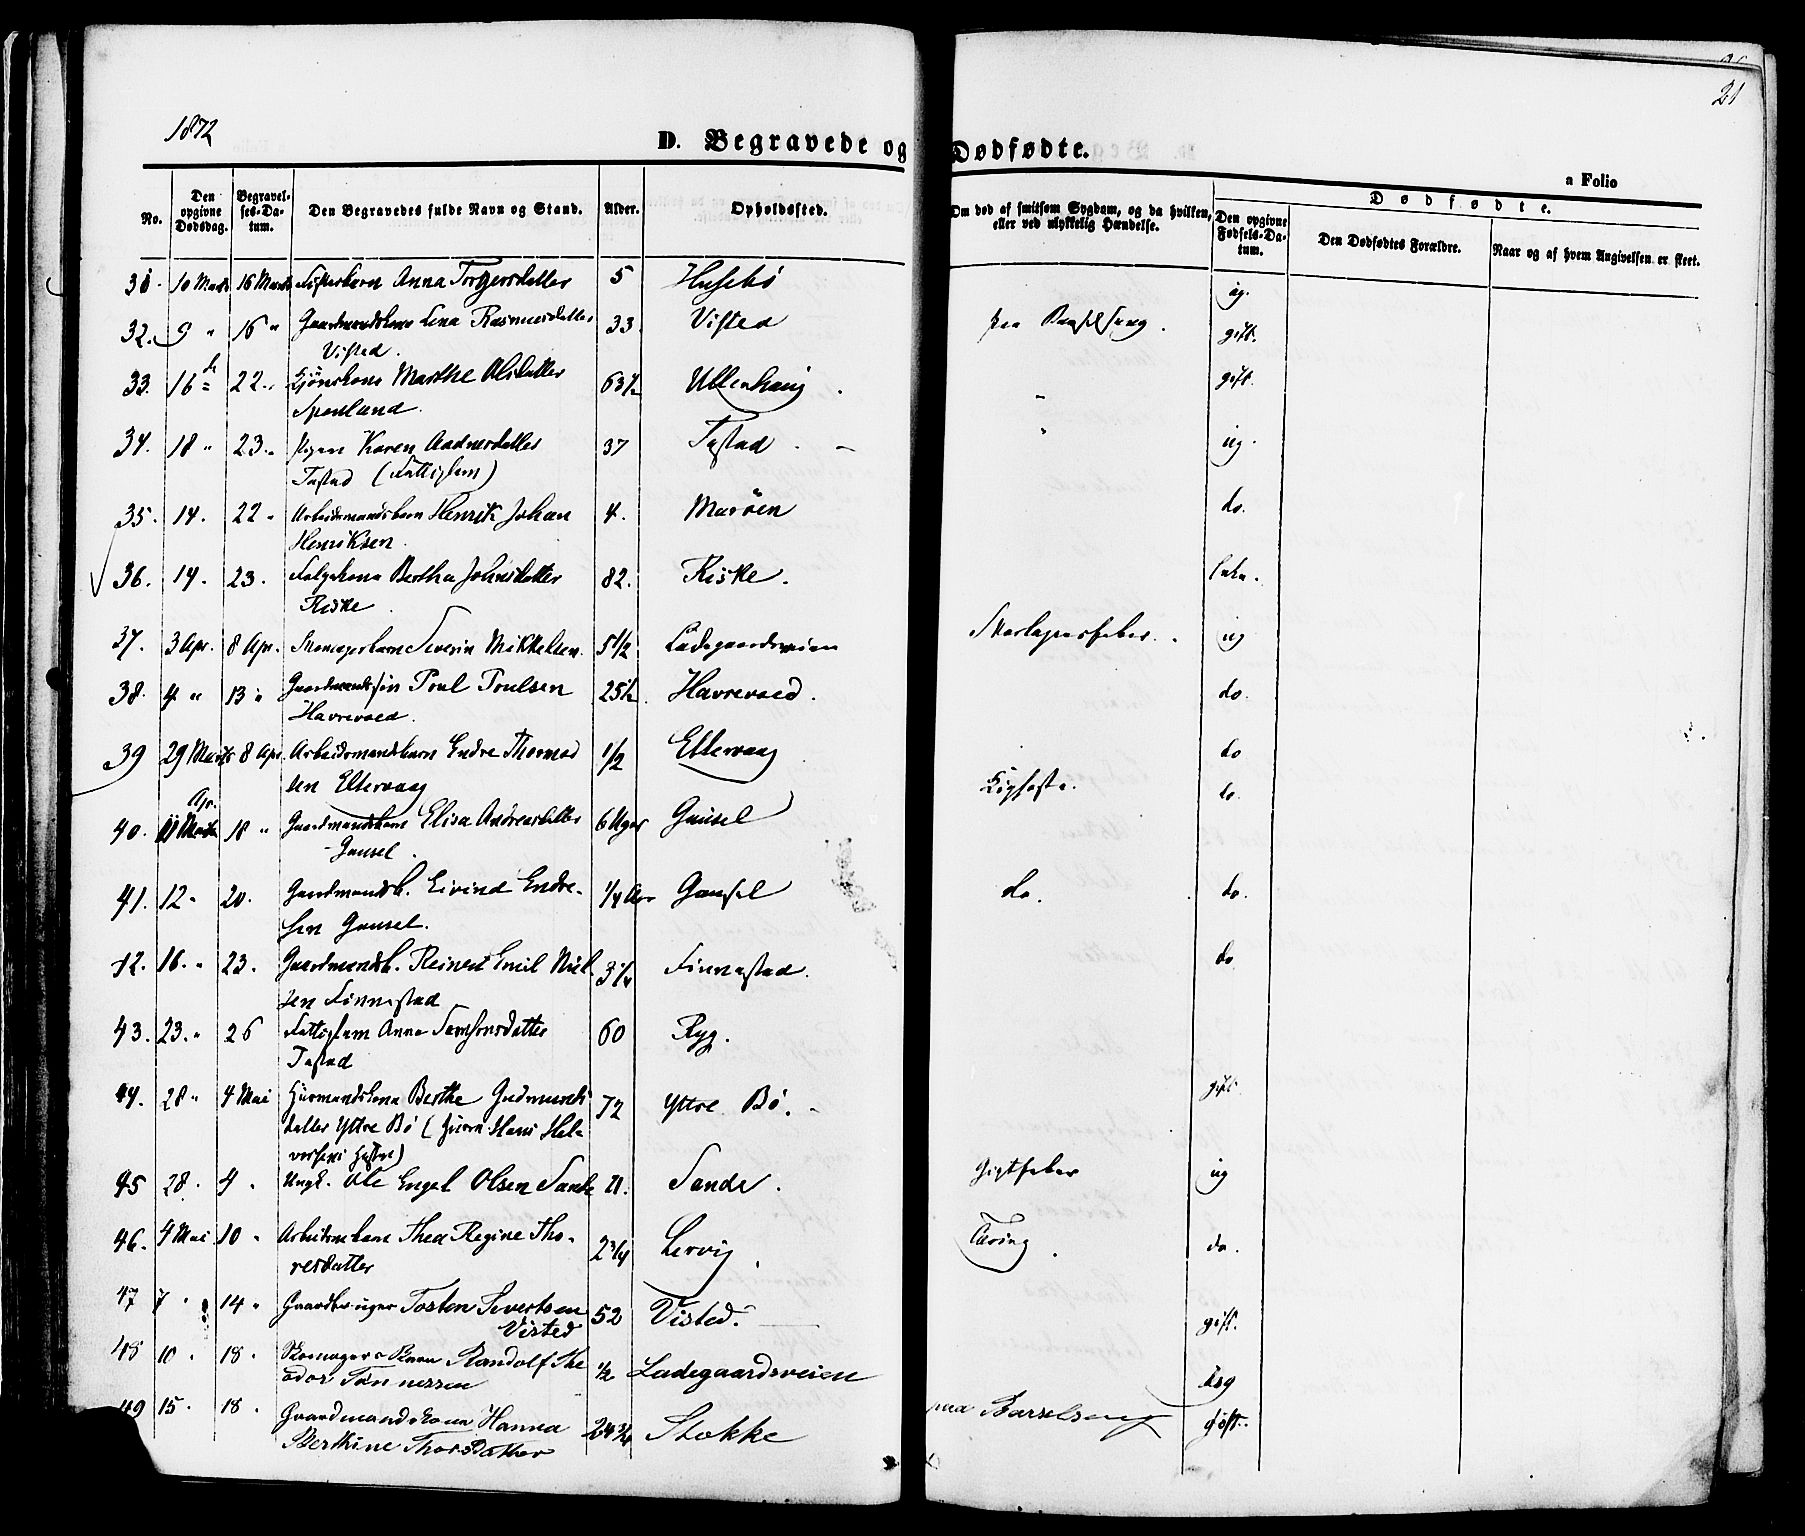 1872
21
D. Begravede og Dødfødte.
a Folio
No.
Den opgivne Dødsdag.
Begravelses-Datum.
Den Begravedes fulde Navn og Stand.
Alder.
Opholdssted.
Om død af smitsom Sygdom, og da hvilken, eller ved ulykkelig Hændelse.
Dødfødte.
Den opgivne Fødsels-Datum.
Den Dødfødtes Forældre.
Naar og af hvem Angivelsen er skeet.
31. 10 Marts 16 Marts Anna Torgersdatter 5 Husebø ug.
32. 9 " 16 " Gaardmandskone Lena Rasmusdatter 33. Visted paa Barselseng. gift.
Visted.
33. 16 " 22 " Marthe Olsdatter 63 1/2 Ullenhaug. " gift.
34. 18 " 23 " Pigen Karen Aadnesdatter 37 Tastad " ug.
Tastad (Fattiglem)
35. 14. 22 " Arbeidsmandsbarn Henrik Johan 4. Marøen do.
Henriksen.
36. 14. 23. Bertha Johnsdatter 82. Riske. enke.
Riske
37. 3 Apr. 8 Apr. Skomagerbarn Severin Mikkelsen 5 1/2 Ladegaardsveien Skarlagensfeber. ug
38. 4 " 13 " Gaardmandssøn Poul Poulsen 25 1/2 Havrevoed. do.
Havrevoed.
39 29 Marts 8 Apr. Arbeidsmandsbarn Endre Thomas 1/2 Ettervaag do
sen Ettervaag
40. 11 Apr. 18 " Elisa Andreasdatter 6 Uger Gausel Kighoste. do.
Gausel.
41. 12 " 20. Gaardmandsb. Eivind Endre- 1/4 Aar Gausel do. do.
sen Gausel.
42. 16. " 23. Gaardmandsb. Reinert Emil Niel 3 1/4 Finnestad. do
sen Finnestad
43. 23. " 26 Fattiglem Anna Samsonsdatter 60 Ryg.
Tastad
44. 28 " 4 Mai Huusmandskone Berthe Gudmunds 72 Yttre Bø. gift.
datter Yttre Bø (
45 28. 4. Ungk. Ole Engel Olsen Sande 21. Sande. Gigtfeber ug
46. 4 Mai. 10 " Thea Regine Tho- 2 3/4 Lervig. Tæring. do.
resdatter
47 7 " 14 " Gaardbruger Tosten Sivertsen 52 Visted. gift.
Visted
48 10 " 18 " Skomager Barn Randolf The 1/2 Ladegaardsveien ug
odor Tønnessen
49 15. 18. Gaardmandskone Hanna 24 3/4 Stokke paa Barselseng gift.
Berthine Thorsdatter